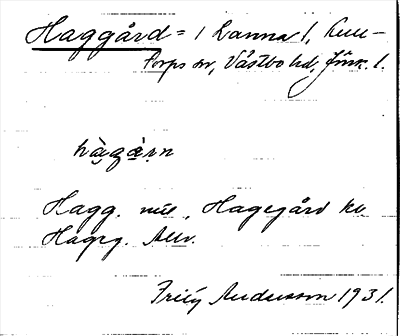 Haggård = i Lanna l, Kuu-
torps sn, Västbo hd, Jönk. l.
hàgà̱rn
Hagg. mil, Hagegård kb
Hagrg. Allv.
Fritz Andersson 1931.